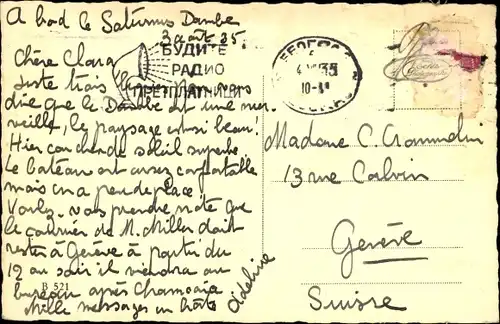 A bord le Saturnus Danube
3 août 35.
Chère Clara
Juste trois mots pour vous
dire que le Danube est une mer-
veille, le paysage est si beau!
Hier coucher de soleil superbe
Le bateau est assez confortable
mais on a peu de place.
Voulez-vous prendre note que
le courrier de M. Miller doit
rester à Genève à partir du
12 au soir il viendra au
bureau après
Mille messages en hâte
Adeline
B 521
БУДИТЕ
РАДИО
ПРЕТПЛАТНИЦИ
БЕОГРАД
4 VIII 35
10-
BEOGRAD
Madame C. Crommelin
13 rue Calvin
Genève
Suisse